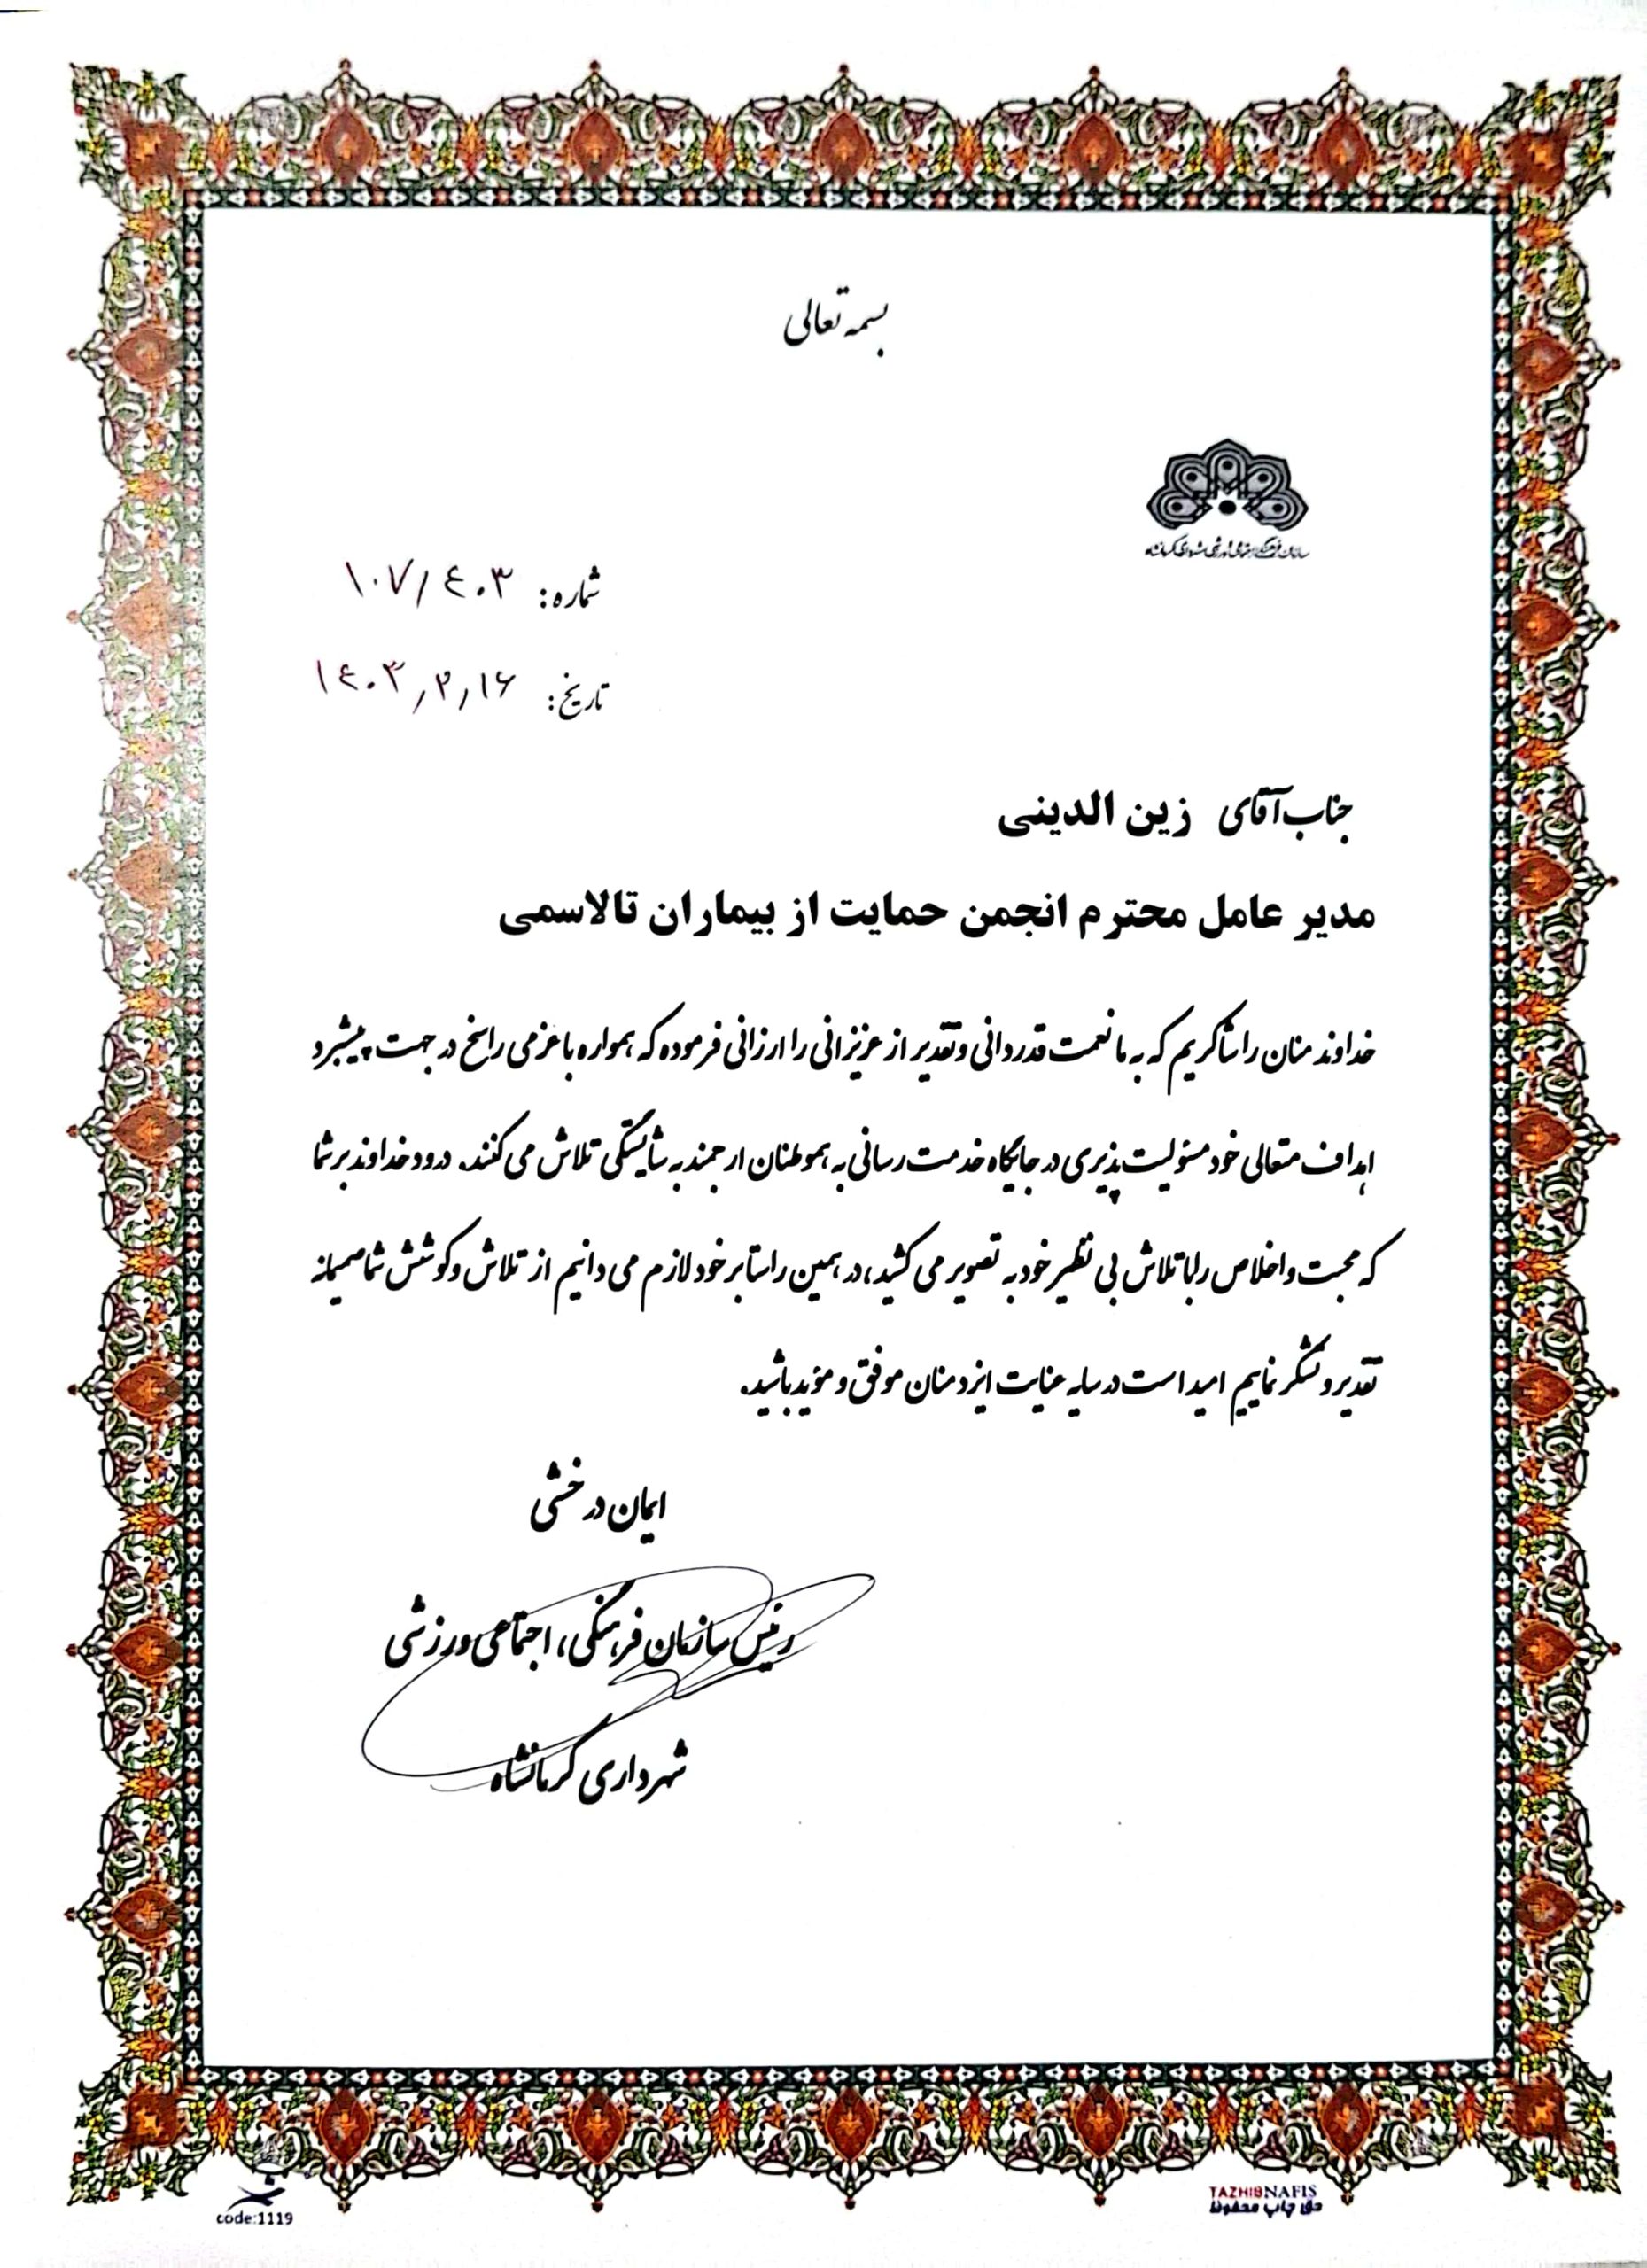 بسمه تعالی
سازمان فرهنگی، اجتماعی و ورزشی شهرداری کرمانشاه
شماره: ۱۰۷/۴۰۳
تاریخ: ۱۴۰۳,۲,۱۶
جناب آقای زین الدینی
مدیر عامل محترم انجمن حمایت از بیماران تالاسمی
خداوند منان را شاکریم که به ما نعمت قدردانی و تقدیر از عزیزانی را ارزانی فرموده که همواره با عزمی راسخ در جهت پیشبرد
اهداف متعالی خود مسئولیت پذیری در جایگاه خدمت رسانی به هموطنان ارجمند به شایستگی تلاش می کنند. درود خداوند بر شما
که محبت و اخلاص را با تلاش بی نظیر خود به تصویر می کشید، در همین راستا بر خود لازم می دانیم از تلاش و کوشش شما صمیمانه
تقدیر و تشکر نماییم امید است در سایه عنایت ایزد منان موفق و مؤید باشید.
ایمان درخشی
رئیس سازمان فرهنگی، اجتماعی و ورزشی
شهرداری کرمانشاه
code:1119
TAZHIBNAFIS
حق چاپ محفوظ